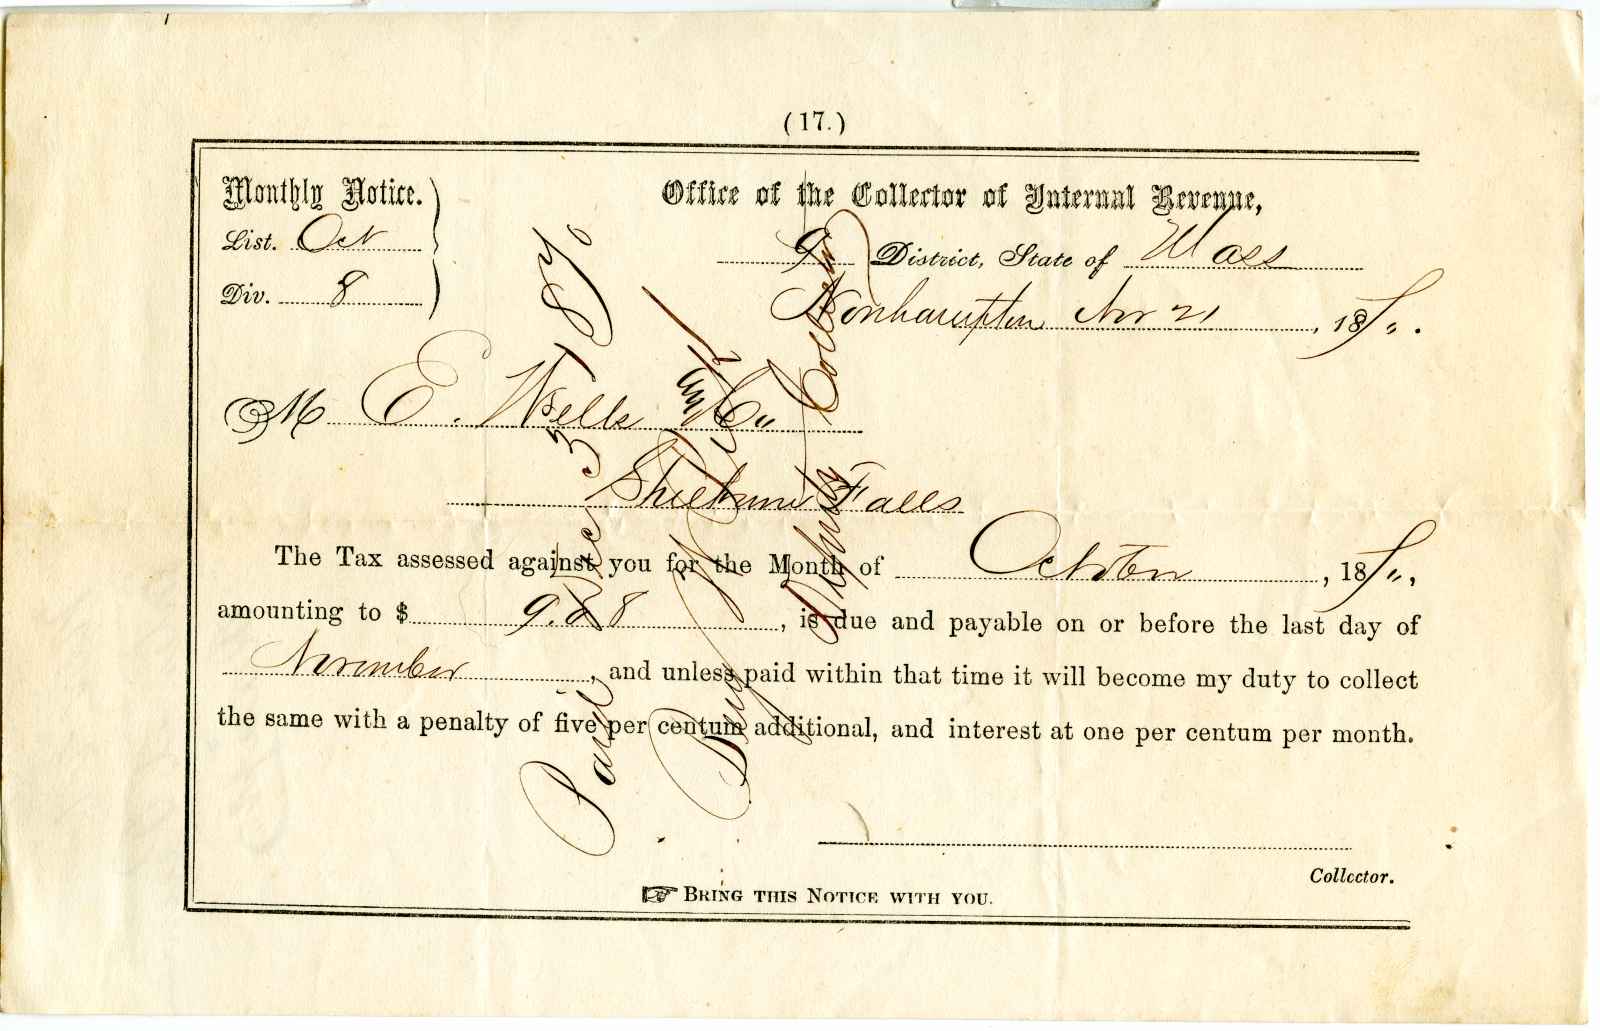 (17.)
Monthly Notice.
Office of the Collector of Internal Revenue,
List. Oct
9 District, State of Mass
Div. 8
Northampton Nov 21, 1870.
M E. Wells & Co
Shelburne Falls
The Tax assessed against you for the Month of October, 1870,
amounting to $ 9.88, is due and payable on or before the last day of
November, and unless paid within that time it will become my duty to collect
the same with a penalty of five per centum additional, and interest at one per centum per month.
Collector.
☞ BRING THIS NOTICE WITH YOU.
Paid Dec 3 1870
Deputy Collector